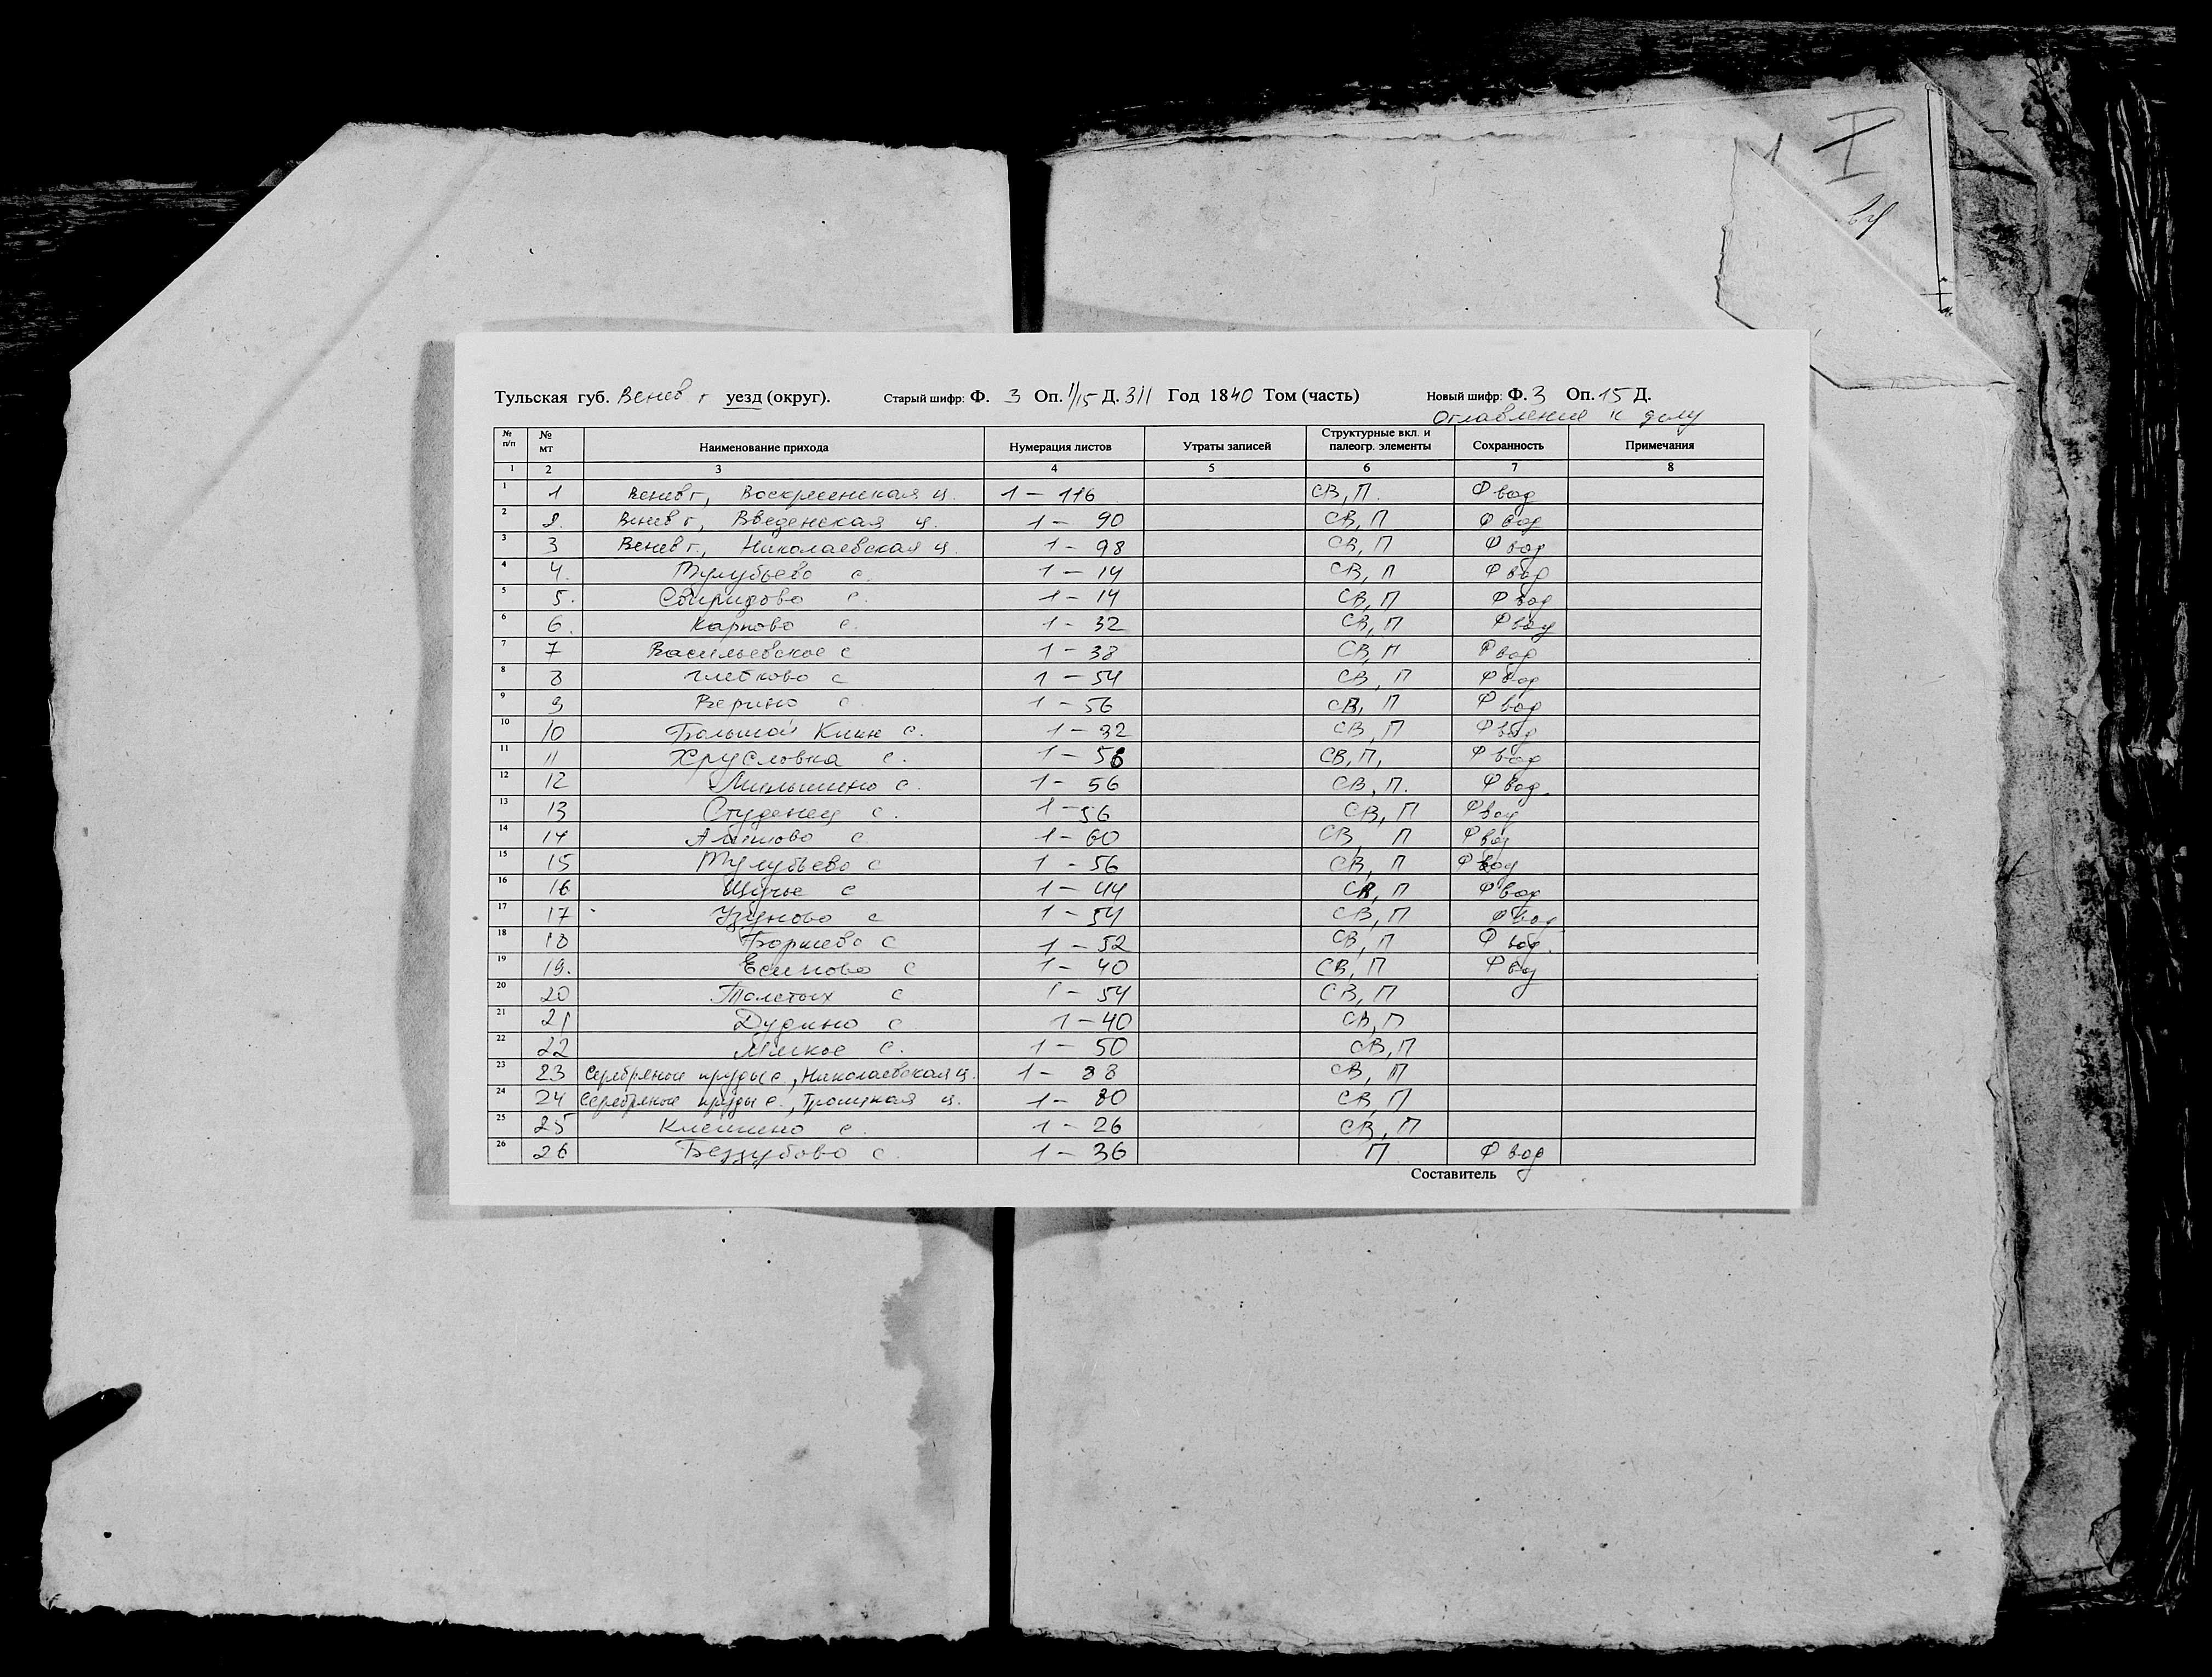 I
Тульская губ. Венев г уезд (округ). Старый шифр: Ф. 3 Оп. 1/15 Д. 311 Год 1840 Том (часть) Новый шифр: Ф. 3 Оп. 15 Д.
Оглавление к делу
№ п/п № мт Наименование прихода Нумерация листов Утраты записей Структурные вкл. и палеогр. элементы Сохранность Примечания
1 2 3 4 5 6 7 8
1 1 Венев г, Воскресенская ц. 1 - 116 СВ, П. Ф вод
2 2. Венев г, Введенская ц. 1 - 90 СВ, П Ф вод
3 3 Венев г., Николаевская ц. 1 - 98 СВ, П Ф вод
4 4. Тулубьево с. 1 - 14 СВ, П Ф вод
5 5. Свиридово с. 1 - 14 СВ, П Ф вод
6 6. Карпово с. 1 - 32 СВ, П Ф вод
7 7 Васильевское с 1 - 38 СВ, П Ф вод
8 8 Глебково с 1 - 54 СВ, П Ф вод
9 9 Верино с. 1 - 56 СВ, П Ф вод
10 10 Большой Клин с. 1 - 32 СВ, П Ф вод
11 11 Хрусловка с. 1 - 56 СВ, П, Ф вод
12 12 с. 1 - 56 СВ, П. Ф вод.
13 13 Студенец с. 1 - 56 СВ, П Ф вод
14 14 с. 1 - 60 СВ П Ф вод
15 15 Тулубьево с 1 - 56 СВ, П Ф вод
16 16 Щучье с 1 - 44 СВ, П Ф вод
17 17 Узуново с 1 - 54 СВ, П Ф вод
18 18 Боршево с 1 - 52 СВ, П Ф вод.
19 19. Есипово с 1 - 40 СВ, П Ф вод
20 20 Толстых с 1 - 54 СВ, П
21 21 Дудино с 1 - 40 СВ, П
22 22 Мягкое с. 1 - 50 СВ, П
23 23 Серебряные пруды с., Николаевская ц. 1 - 88 СВ, П
24 24 Серебряные пруды с., Троицкая ц. 1 - 80 СВ, П
25 25 Клемино с. 1 - 26 СВ, П
26 26 Беззубово с. 1 - 36 П Ф вод
Составитель